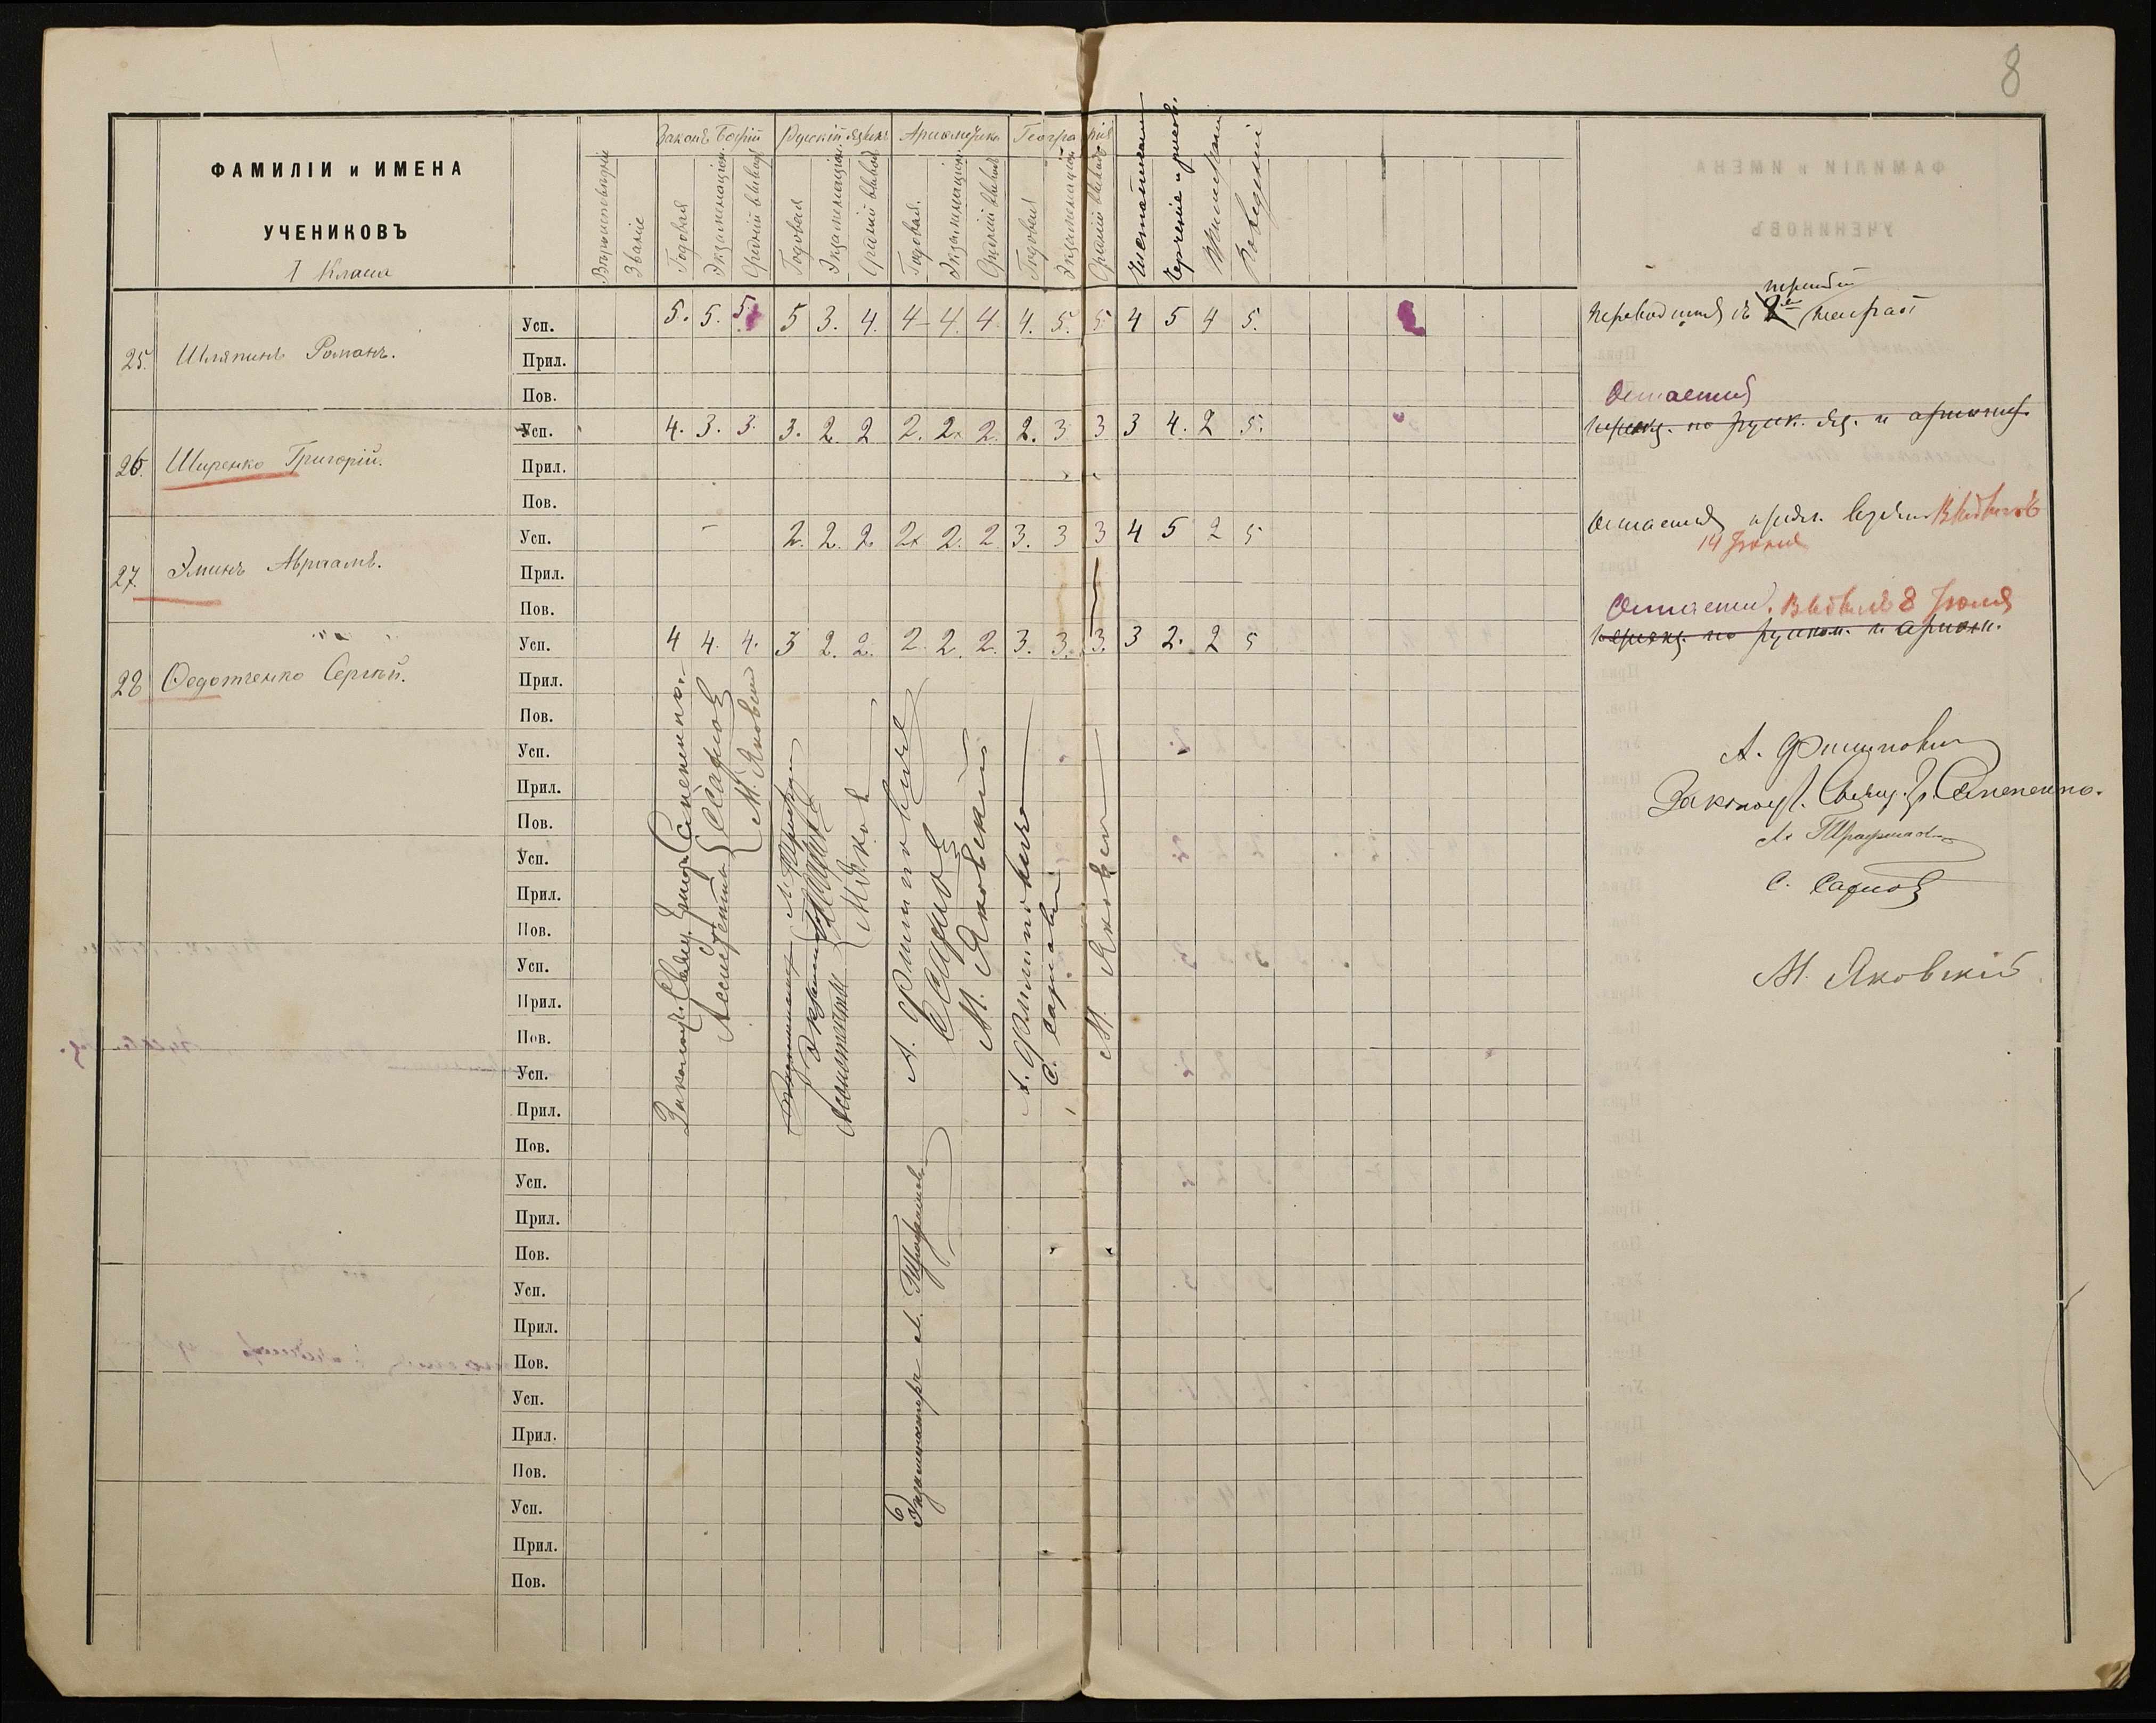 8
ФАМИЛІИ и ИМЕНА
УЧЕНИКОВЪ
I Класса
Вѣроисповѣданіе
Званіе
Законъ Божій
Русскій языкъ
Ариѳметика
Географія
Годовая
Экзаменаціон.
Средній выводъ
Годовая
Экзаменаціон.
Средній выводъ
Годовая
Экзаменаціон.
Средній выводъ
Годовая
Экзаменаціон
Средній выводъ
Чистописаніе
Черченіе и рисов.
Поведеніе
25. Шляпинъ Романъ.
Усп. 5. 5. 5. 5 3. 4. 4 4. 4 4. 5. 5 4 5 4 5.
Прил.
Пов.
Переводится въ 2й первый
26. Ширенко Григорій.
Усп. 4. 3. 3. 3. 2 2 2. 2. 2. 2. 3 3 3 4. 2 5.
Прил.
Пов.
Остается
по русск. яз. и ариѳмет.
27. Эминъ Авраамъ.
Усп. – 2. 2. 2 2. 2. 2 3. 3 3 4 5 2 5
Прил.
Пов.
Остается
14 Іюня
28 Ѳедотченко Сергѣй.
Усп. 4 4. 4. 3 2. 2. 2. 2. 2. 3. 3. 3. 3 2. 2 5
Прил.
Пов.
Остается. Выбылъ 8 Іюня
по русском. и ариѳм.
Усп.
Прил.
Пов.
Усп.
Прил.
Пов.
Усп.
Прил.
Пов.
Усп.
Прил.
Пов.
Усп.
Прил.
Пов.
Усп.
Прил.
Пов.
Усп.
Прил.
Пов.
Усп.
Прил.
Пов.
Законоуч. Свящ. Григор. Степаненко.
Ассистенты
С. Сафонов
М. Яковскій
А. Филиповичъ
С. Сафонов
М. Яковскій
А. Филиповичъ
С. Сафонов
М. Яковскій
Экзаменаторъ
А. Филиповичъ
Законоуч. Свящ. Гр. Степаненко.
С. Сафонов
М. Яковскій